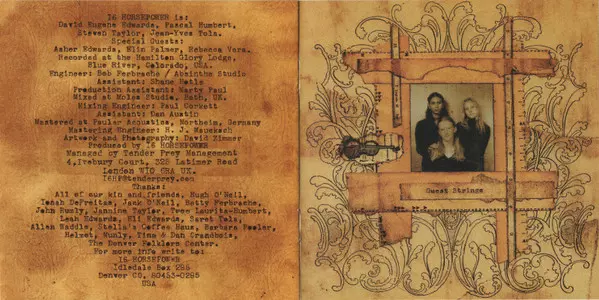 16 HORSEPOWER is:
David Eugene Edwards, Pascal Humbert,
Steven Taylor, Jean-Yves Tola.
Special Guests:
Asher Edwards, Elin Palmer, Rebecca Vera.
Recorded at the Hamilton Glory Lodge,
Blue River, Colorado, USA.
Engineer: Bob Ferbrache / Absinthe Studio
Assistant: Shane Hotle
Production Assistant: Marty Paul
Mixed at Moles Studio, Bath, UK.
Mixing Engineer: Paul Corkett
Assistant: Dan Austin
Mastered at Pauler Acoustics, Northeim, Germany
Mastering Engineer: H. J. Maucksch
Artwork and Photography: David Zimmer
Produced by 16 HORSEPOWER
Managed by Tender Prey Management
4, Ivebury Court, 325 Latimer Road
London W10 6RA UK.
16HP@tenderprey.com
Thanks:
All of our kin and friends, Hugh O'Neil,
Isaiah DeFreitas, Jack O'Neil, Betty Ferbrache,
John Rumly, Jannine Taylor, Yves Laurita-Humbert,
Leah Edwards, Eli Edwards, Sarel Tola,
Allan Waddle, Stella's Coffee Haus, Barbara Keeler,
Helmet, Munly, Tina & Dan
The Denver Folklore Center.
For more info write to:
16 HORSEPOWER
Idledale Box 295
Denver CO. 80453-0295
USA
Guest Strings